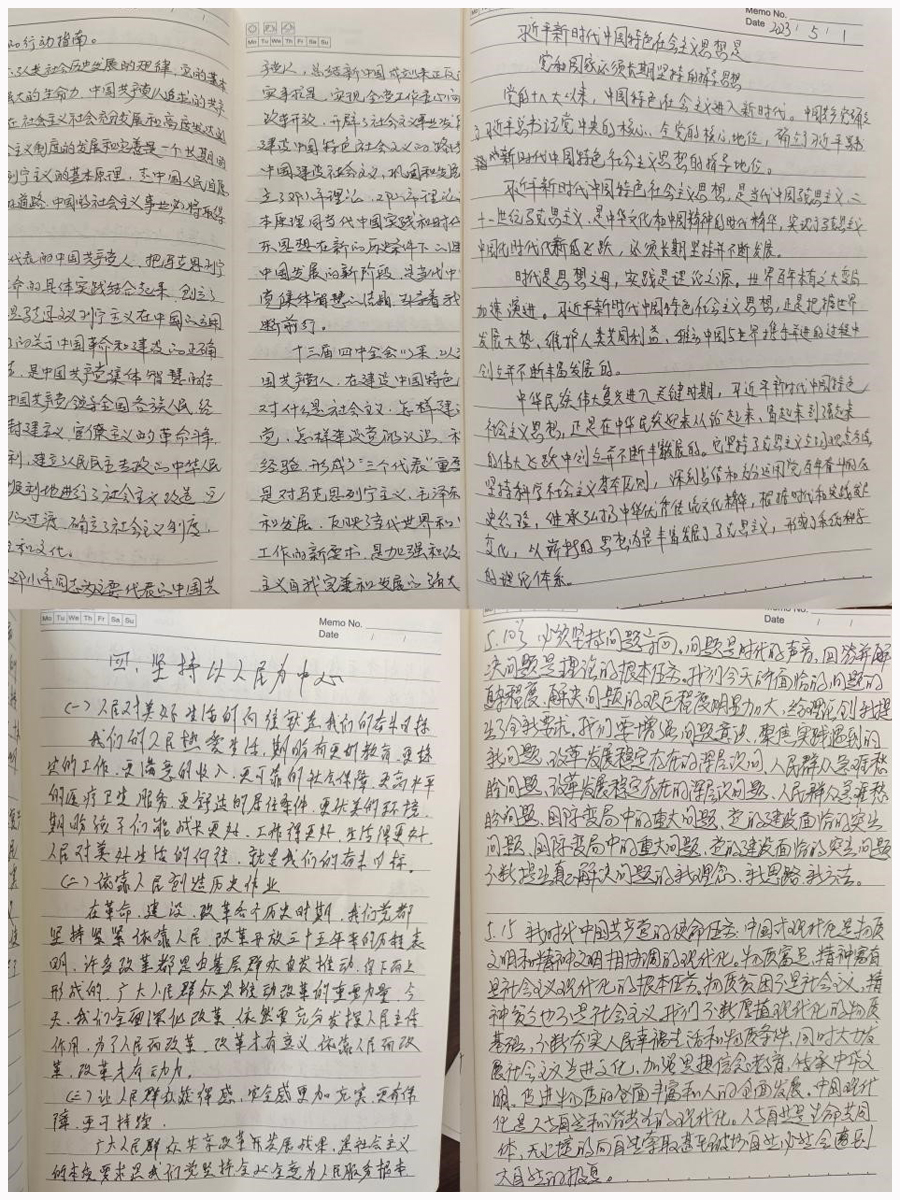 的行动指南。
社会历史发展的规律，党的基本
大的生命力。中国共产党人追求的共产
在社会主义社会充分发展和高度发达的
主义制度的发展和完善是一个长期的
列宁主义的基本原理，走中国人民自愿
道路，中国的社会主义事业必将取得
代表的中国共产党人，把马克思列宁
命的具体实践结合起来，创立了
马克思主义列宁主义在中国的运用
了的关于中国革命和建设的正确
是中国共产党集体智慧的结
中国共产党领导全国各族人民，经
封建主义，官僚主义的革命斗争，
利，建立了人民民主专政的中华人民
顺利地进行了社会主义改造，完
的过渡，确立了社会主义制度，
和文化。
邓小平同志为主要代表的中国共
Mo Tu We Th Fr Sa Su
产党人，总结新中国成立以来正反
实事求是，实现全党工作重心向
改革开放，开辟了社会主义事业发
建设中国特色社会主义的路线
中国建设社会主义，巩固和发展
立了邓小平理论，邓小平理论
本原理同当代中国实践和时代
东思想在新的历史条件下的
中国发展的新阶段，是当代中
党集体智慧的结晶，引导着我
断前行。
十三届四中全会以来，以
国共产党人，在建设中国特色
对什么是社会主义，怎样建
党，怎样建设党的认识，
经验，形成了“三个代表”重要
是对马克思列宁主义，毛泽东
和发展，反映了当代世界和
工作的新要求，是加强和改
主义自我完善和发展的强大
Memo No.
Date 2023 / 5 / 1
习近平新时代中国特色社会主义思想是
党和国家必须长期坚持的指导思想
党的十八大以来，中国特色社会主义进入新时代。中国共产党确立
习近平总书记党中央的核心、全党的核心地位，确立了习近平
新时代中国特色社会主义思想的指导地位。
习近平新时代中国特色社会主义思想，是当代中国马克思主义，二
十一世纪马克思主义，是中华文化和中国精神的时代精华，实现了马克思主义
中国化时代化新的飞跃，必须长期坚持并不断发展。
时代是思想之母，实践是理论之源。世界百年未有之大变局
加速演进。习近平新时代中国特色社会主义思想，正是把握世界
发展大势、维护人类共同利益、推动中国与世界携手并进的过程中
创立并不断丰富发展的。
中华民族伟大复兴进入关键时期，习近平新时代中国特色
社会主义思想，正是在中华民族迎来从站起来、富起来到强起来
的伟大飞跃中创立并不断丰富发展的。它坚持了马克思主义立场观点方法，
坚持科学社会主义基本原则，深刻总结和充分运用党百年奋斗的历
史经验，继承弘扬了中华优秀传统文化精华，根据时代和实践发展
变化，以崭新的思想内容丰富发展了马克思主义，形成了系统科学
的理论体系。
Mo Tu We Th Fr Sa Su
Memo No.
Date / /
四、坚持以人民为中心
(一)人民对美好生活的向往就是我们的奋斗目标
我们的人民热爱生活，期盼有更好教育、更稳
定的工作、更满意的收入、更可靠的社会保障、更高水平
的医疗卫生服务、更舒适的居住条件、更优美的环境，
期盼孩子们能成长更好、工作得更好、生活得更好。
人民对美好生活的向往，就是我们的奋斗目标。
(二)依靠人民创造历史伟业
在革命、建设、改革各个历史时期，我们党都
坚持紧紧依靠人民，改革开放三十五年来的历程表
明，许多改革都是由基层群众自发推动、自下而上
形成的，广大人民群众是推动改革的重要力量，今
天，我们全面深化改革，依然要充分发挥人民主体
作用，为了人民而改革，改革才有意义，依靠人民而改
革，改革才有动力。
(三)让人民群众获得感，安全感更加充实，更有保
障，更可持续
广大人民群众共享改革开放发展成果，是社会主义
的本质要求，是我们党坚持全心全意为人民服务根本
Memo No.
Date / /
5.10 必须坚持问题导向。问题是时代的声音，回答并解
决问题是理论的根本任务。我们今天所面临的问题的
程度、解决问题的艰巨程度明显加大，给理论创新提
出了全新要求。我们要增强问题意识，聚焦实践遇到的
新问题、改革发展稳定存在的深层次问、人民群众急难愁
盼问题、改革发展稳定存在的深层次问题、人民群众急难愁
盼问题、国际变局中的重大问题、党的建设面临的突出
问题、国际变局中的重大问题、党的建设面临的突出问题
不断提出真正解决问题的新理念、新思路、新办法。
5.15 新时代中国共产党的使命任务：中国式现代化是物质
文明和精神文明相协调的现代化。物质富足、精神富有
是社会主义现代化的根本任务。物质贫困不是社会主义，精
神贫乏也不是社会主义。我们不断厚植现代化的物质
基础，不断夯实人民幸福生活和物质条件，同时大力发
展社会主义先进文化，加强思想信念教育，传承中华文
明，促进物质的全面丰富和人的全面发展。中国现代
化是人与自然和谐共生的现代化。人与自然是生命共同
体，无止境的向自然索取甚至破坏自然必然会遭到
大自然的报复。